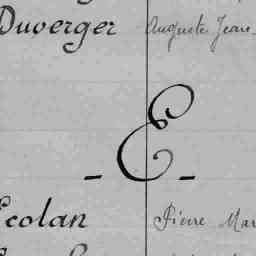 Duverger Auguste Jean
- E -
Ecolan Pierre Mar